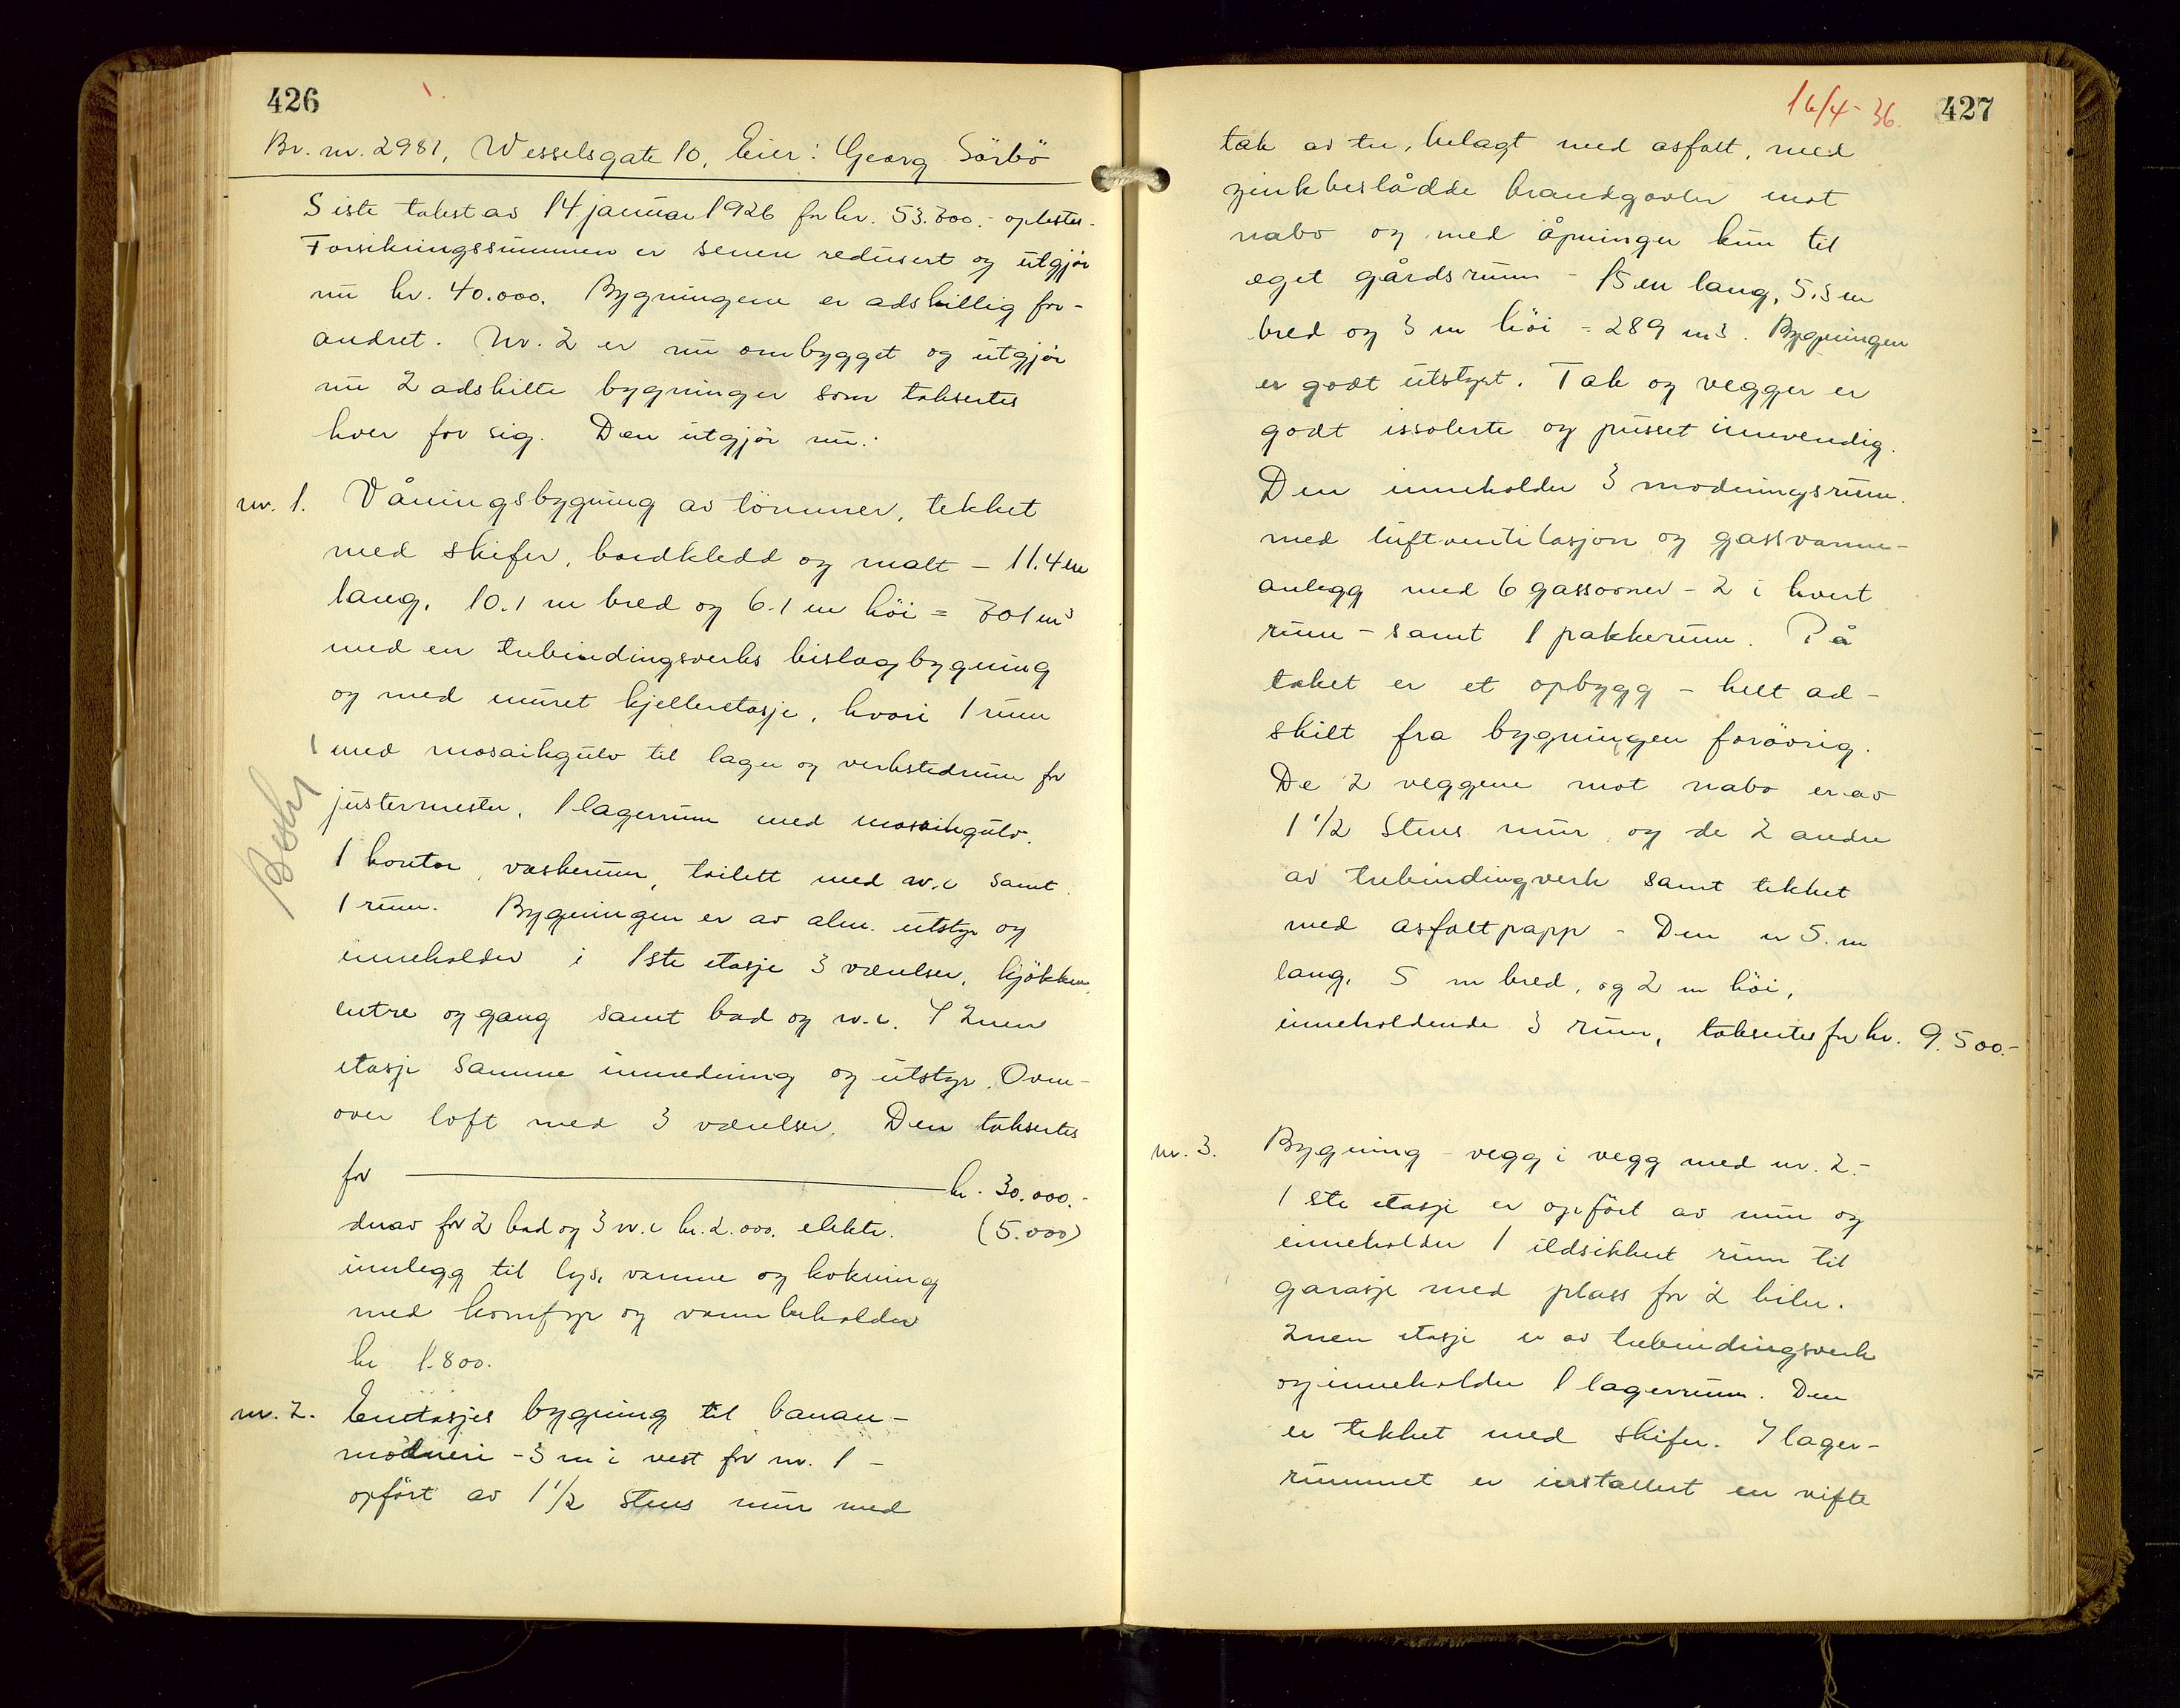 426
Br. nr. 2981, Wesselsgate 10, Eier: Georg Sörbö
Siste takst av 14 januar 1926 for kr. 53.700.- oplestes.
Forsikringssummen er senere redusert og utgjör
nu kr. 40.000. Bygningene er adskillig for-
andret. Nr. 2 er nu ombygget og utgjör
nu 2 adskilte bygninger som takseres
hver for sig. Den utgjör nu:
nr. 1. Våningsbygning av tömmer, tekket
med skifer, bordkledd og malt - 11.4 m
lang, 10.1 m bred og 6.1 m höi = 701 m³
med en trebindingsverks bislagbygning
og med muret kjelleretasje, hvori 1 rum
med mosaikgulv til lager og verkstedrum for
justermester, 1 lagerrum med mosaikgulv.
1 kontor, vaskerum, toilett med w.c samt
1 rum. Bygningen er av alm. utstyr og
inneholder i 1ste etasje 3 værelser, kjökken,
entre og gang samt bad og w.c. I 2nen
etasje samme innredning og utstyr. Oven-
over loft med 3 værelser. Den takseres
for kr. 30.000.-
derav for 2 bad og 3 w.c kr. 2.000. elektr. (5.000)
innlegg til lys, varme og kokning
med komfyr og vannbeholder
kr 1.800.
nr. 2. Enetasjes bygning til banan-
modneri - 3 m i vest for nr. 1 -
opfört av 1 1/2 stens mur med
16/4-36. 427
tak av tre, belagt med asfalt, med
zinkbeslådde brandgavler mot
nabo og med åpninger kun til
eget gårdsrum - 15 m lang, 5.5 m
bred og 3 m höi = 289 m3. Bygningen
er godt utstyrt. Tak og vegger er
godt issolerte og pusset innvendig.
Den inneholder 3 modningsrum.
med luftventilasjon og gassvarme-
anlegg med 6 gassovner - 2 i hvert
rum - samt 1 pakkerum. På
taket er et opbygg - helt ad-
skilt fra bygningen forövrig.
De 2 veggene mot nabo er av
1 1/2 Stens mur og de 2 andre
av trebindingverk samt tekket
med asfaltpapp - Den er 5. m
lang, 5 m bred, og 2 m höi,
inneholdende 3 rum, takseres for kr. 9.500.-
nr. 3. Bygning - vegg i vegg med nr. 2.-
1ste etasje er opfört av mur og
inneholder 1 ildsikkert rum til
garasje med plass for 2 biler.
2nen etasje er av trebindingsverk
og inneholder 1 lagerrum. Den
er tekket med skifer. I lager-
rummet er installert en vifte